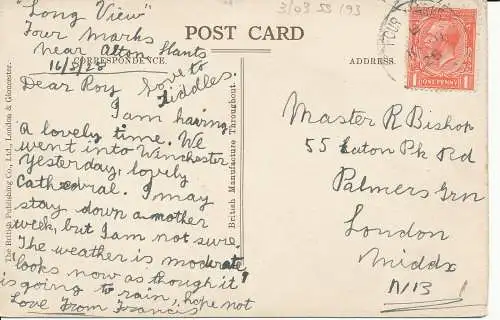 "Long View"
Four Marks
near Alton Hants
16/5/28
3/03 SS /93
POST CARD
CORRESPONDENCE.
ADDRESS.
Dear Roy Love to
Tiddles.
I am having
A lovely time. We
went into Winchester
yesterday, lovely
Cathedral. I may
stay down another
week, but I am not sure.
The weather is moderate,
looks now as though it
is going to rain, hope not
Love From Francis
The British Publishing Co., Ltd., London & Gloucester.
British Manufacture Throughout.
Master R Bishop
55 Eaton Pk Rd
Palmers Grn
London
Middx
N13
FOUR
ONE PENNY
1 1